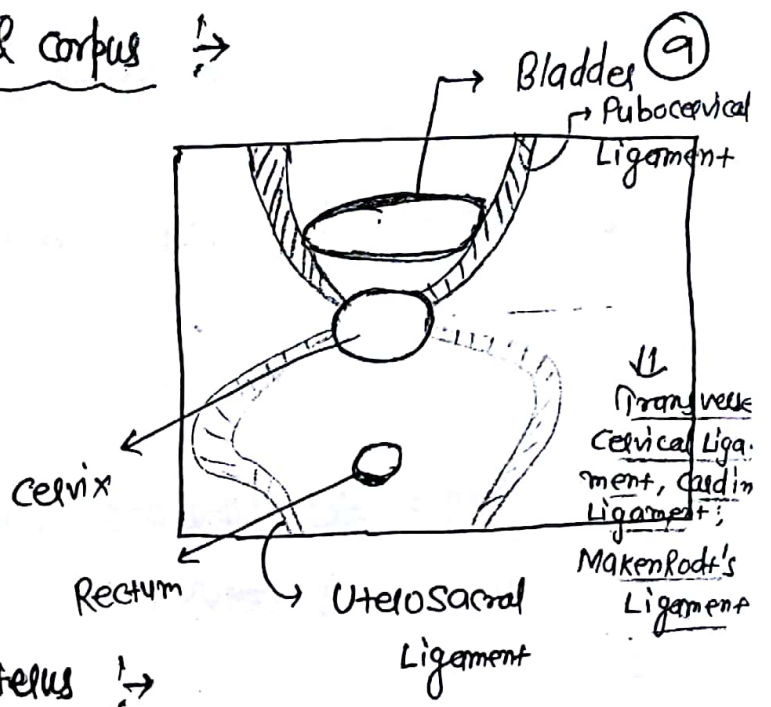 & corpus :→
9
Bladder
Pubocervical
Ligament
Transverse
Cervical Liga-
ment, cardin
Ligament;
MakenRodt's
Ligament
Cervix
Rectum
Uterosacral
Ligament
terus :→